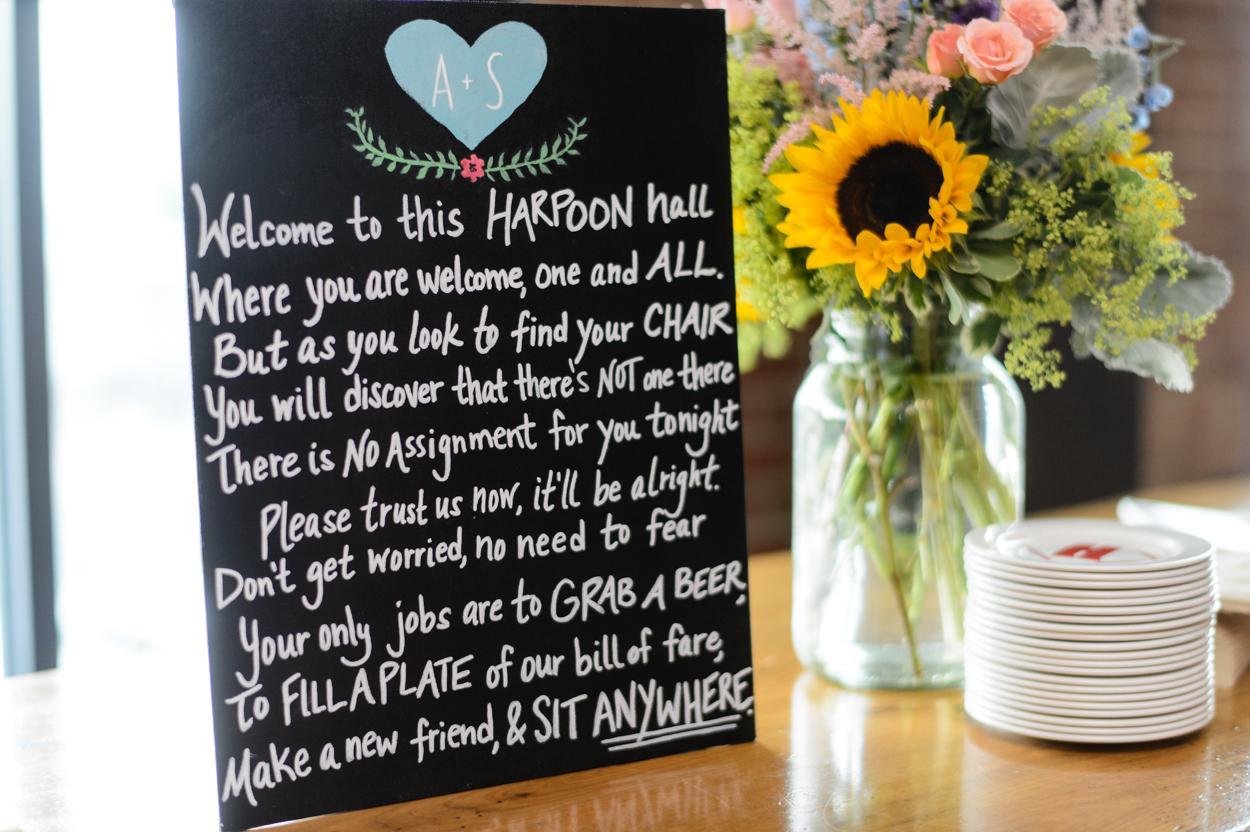 A + S
Welcome to this HARPOON hall
Where you are welcome, one and ALL.
But as you look to find your CHAIR
You will discover that there's NOT one there
There is NO Assignment for you tonight
Please trust us now, it'll be alright.
Don't get worried, no need to fear
Your only jobs are to GRAB A BEER,
to FILL A PLATE of our bill of fare,
Make a new friend, & SIT ANYWHERE.